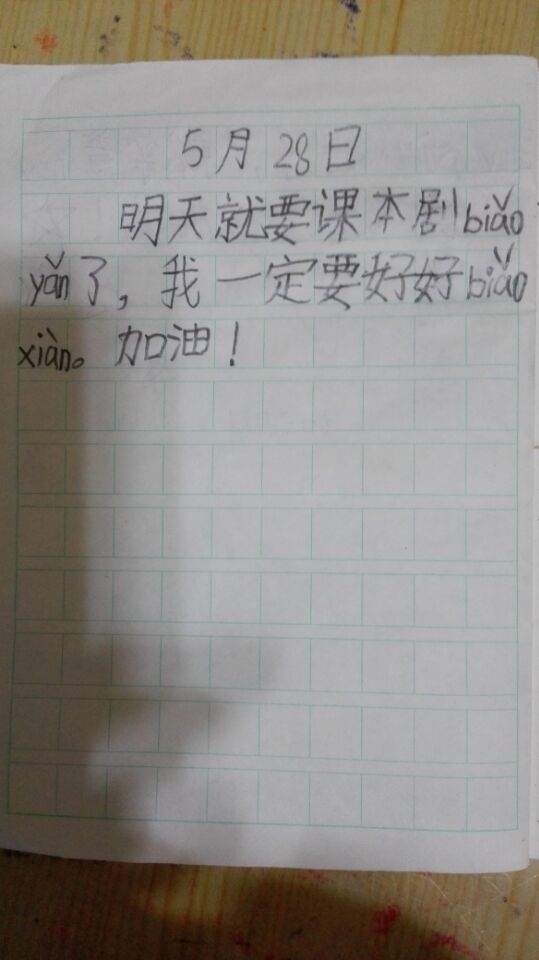 5月28日
明天就要课本剧biǎo
yǎn了，我一定要好好biǎo
xiàn。加油！